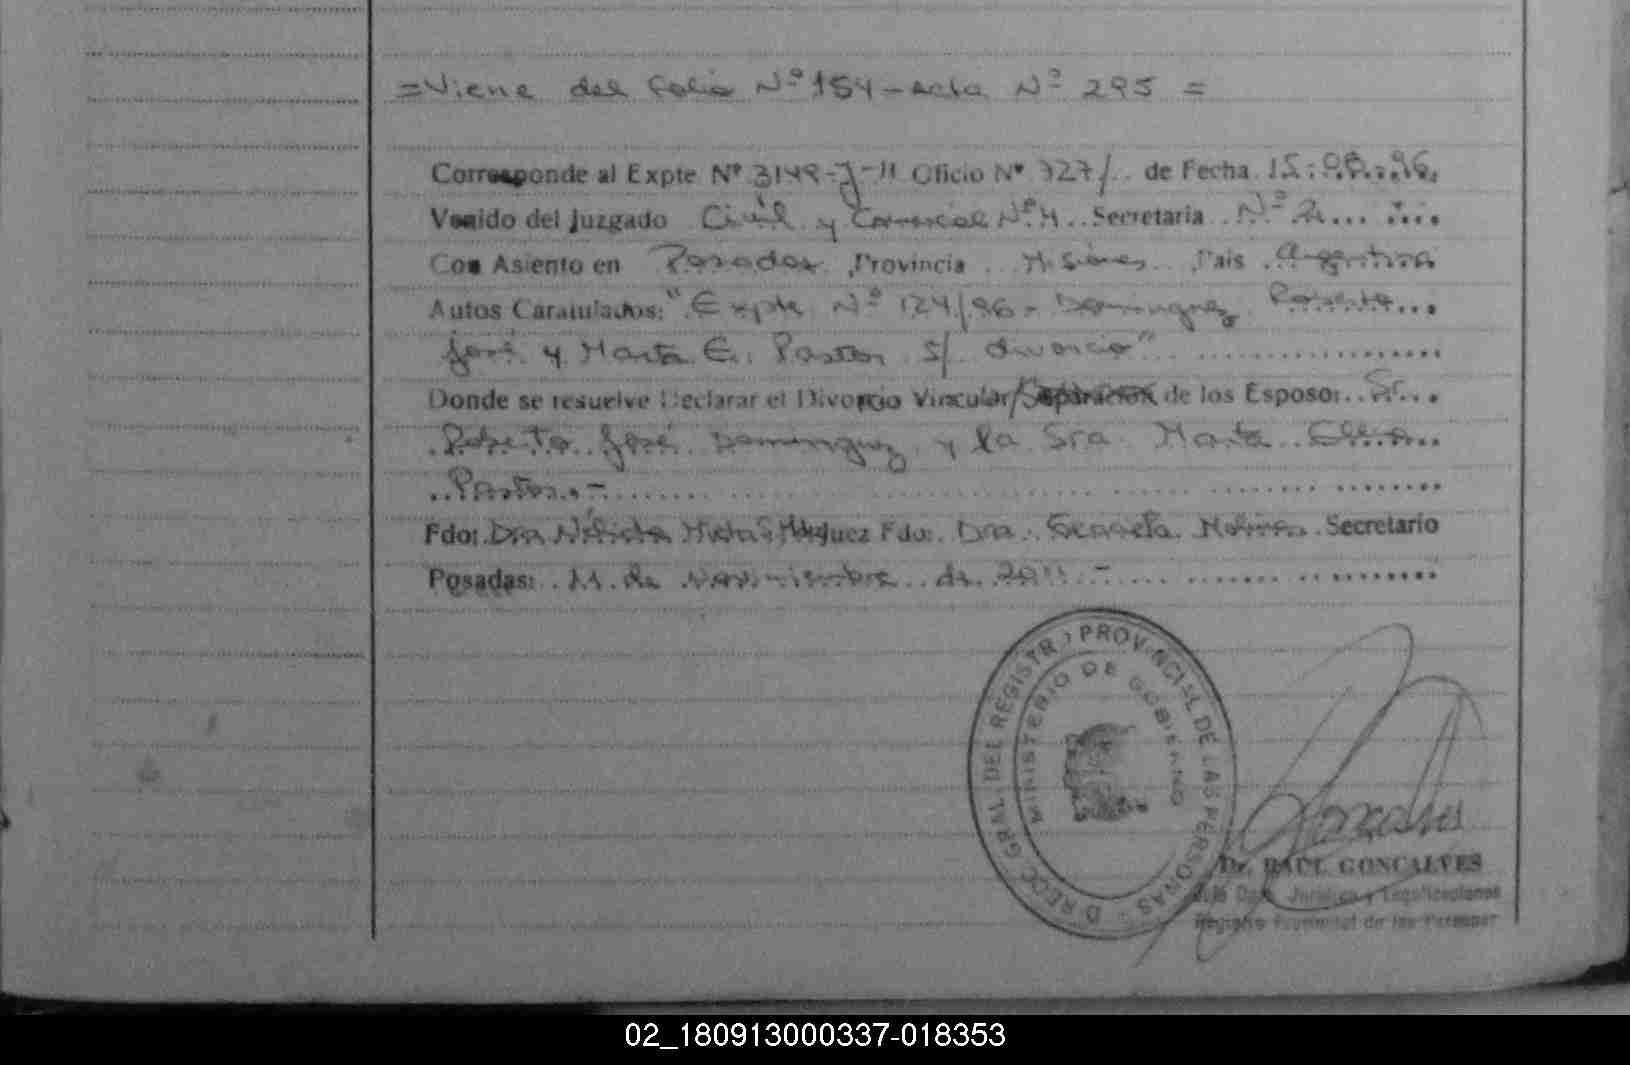 =Viene del folio Nº 154 - Acta Nº 295 =
Corresponde al Expte Nº 3149-J-11 Oficio Nº 727/.. de Fecha
Venido del Juzgado Civil y Comercial Nº 4.. Secretaria.. Nº 2... ....
Con Asiento en Posadas Provincia... Misiones... Pais.. Argentina
Autos Caratulados: "Expte Nº 124/96 - Dominguez Roberto...
José y Marta E. Pastor s/ divorcio"
Donde se resuelve Declarar el Divorcio Vincular/Separacion de los Esposos.. Sr...
Roberto José Dominguez y la Sra. Marta Elena
Pastor.-
Fdo: Dra Fdo: Dra. Graciela Secretario
Posadas: 11 de Noviembre de 2011.-
DIRECC. GRAL. DEL REGISTRO PROVINCIAL DE LAS PERSONAS
MINISTERIO DE GOBIERNO
Goncalves
Dr. RAUL GONCALVES
Jefe Dpto. Jurídico y Legalizaciones
Registro Provincial de las Personas
02_180913000337-018353